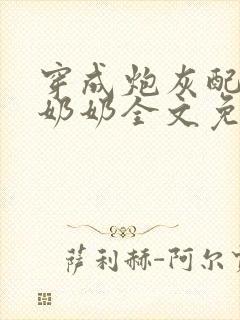 穿成炮灰配
奶奶全文免
萨利赫-阿尔